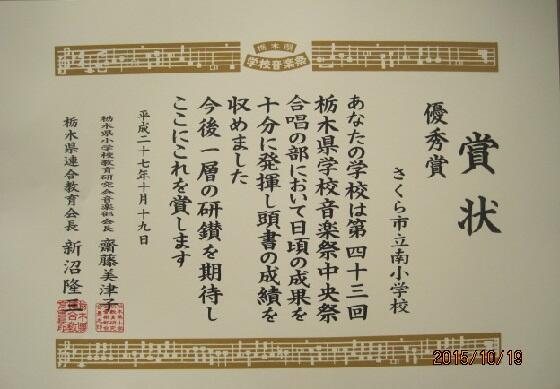 栃木県
学校音楽祭
賞状
優秀賞
さくら市立南小学校
あなたの学校は第四十三回
栃木県学校音楽祭中央祭
合唱の部において日頃の成果を
十分に発揮し頭書の成績を
収めました
今後一層の研鑚を期待し
ここにこれを賞します
平成二十七年十月十九日
栃木県小学校教育研究会音楽部会長 齋藤美津子
栃木県連合教育会長 新沼隆三
2015/10/19